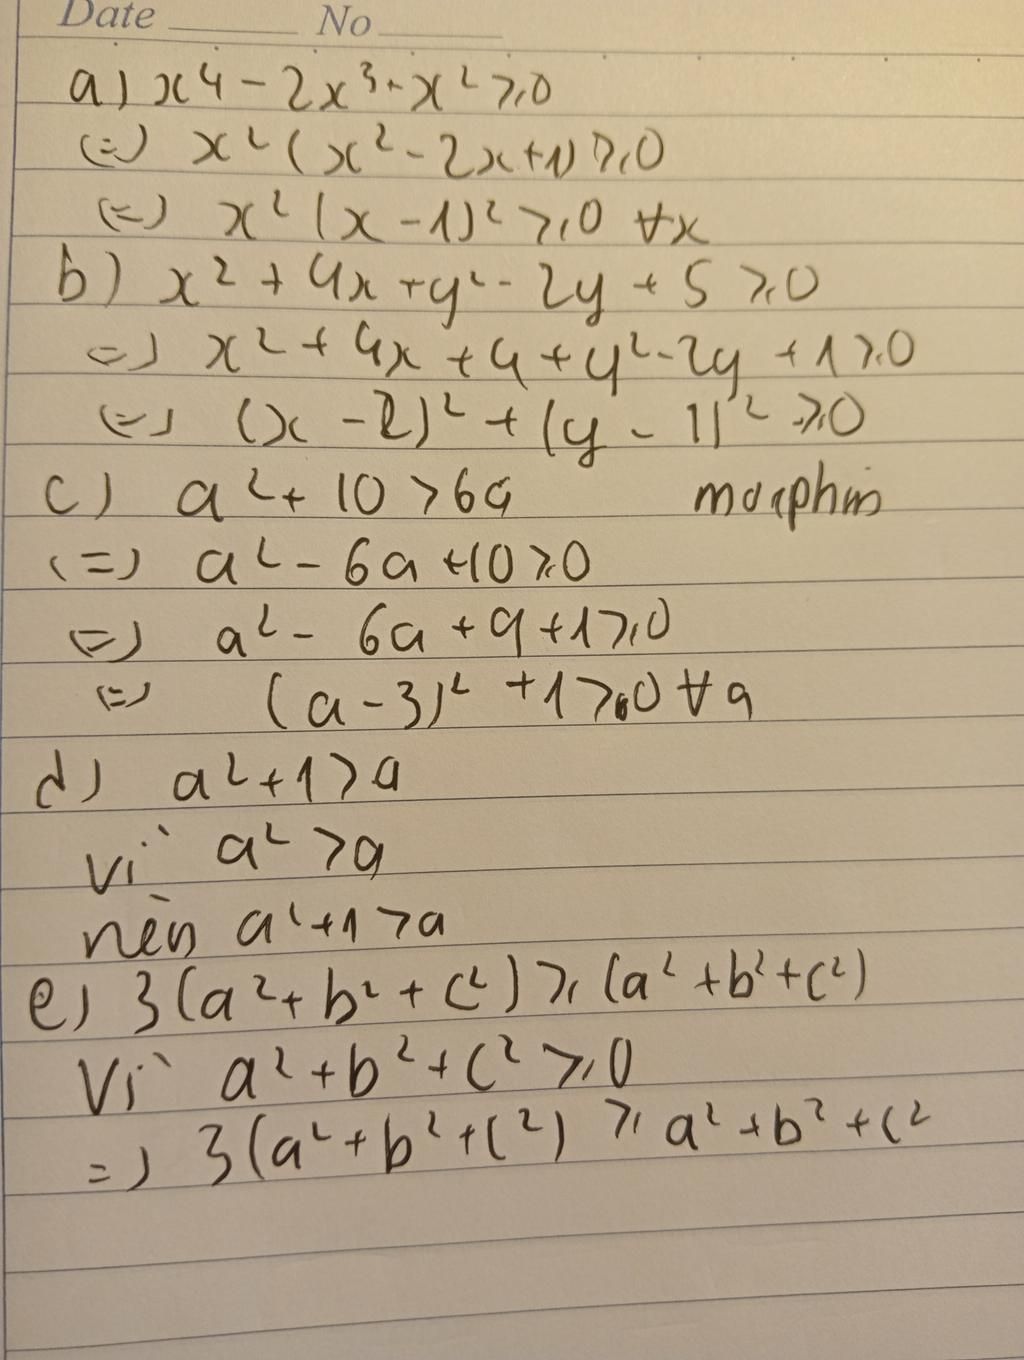 Date No
a) x4 - 2x³ - x² ≥ 0
(=) x² (x² - 2x + 1) ≥ 0
(=) x² (x - 1)² ≥ 0 ∀x
b) x² + 4x + y² - 2y + 5 ≥ 0
=) x² + 4x + 4 + y² - 2y + 1 ≥ 0
(=) (x - 2)² + (y - 1)² ≥ 0
c) a² + 10 > 6a
(=) a² - 6a + 10 ≥ 0
=) a² - 6a + 9 + 1 ≥ 0
(=) (a - 3)² + 1 ≥ 0 ∀a
d) a² + 1 > a
Vì a² > a
nên a² + 1 > a
e) 3(a² + b² + c²) ≥ (a² + b² + c²)
Vì a² + b² + c² ≥ 0
=) 3(a² + b² + c²) ≥ a² + b² + c²